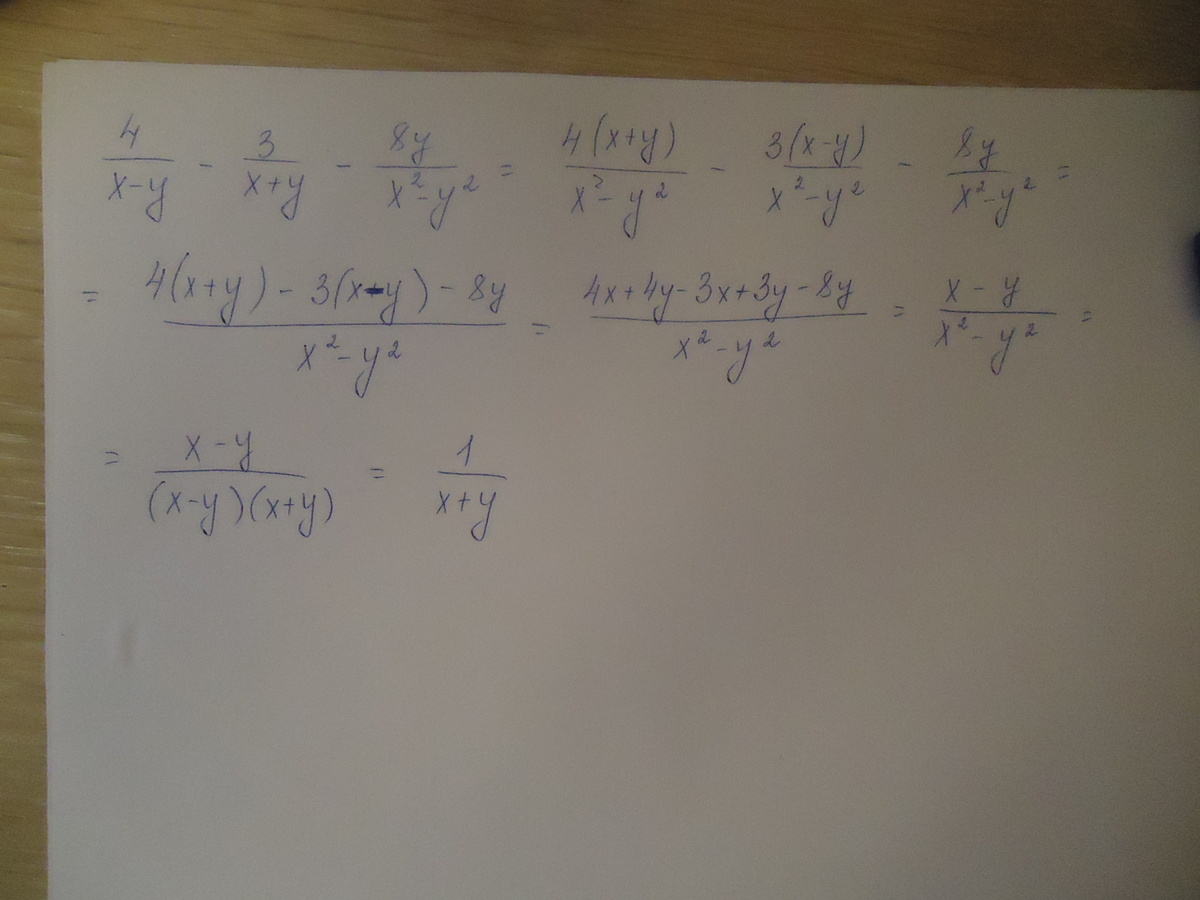 4/(x-y) - 3/(x+y) - 8y/(x²-y²) = 4(x+y)/(x²-y²) - 3(x-y)/(x²-y²) - 8y/(x²-y²) =
= (4(x+y) - 3(x-y) - 8y)/(x²-y²) = (4x+4y-3x+3y-8y)/(x²-y²) = (x-y)/(x²-y²) =
= (x-y)/((x-y)(x+y)) = 1/(x+y)